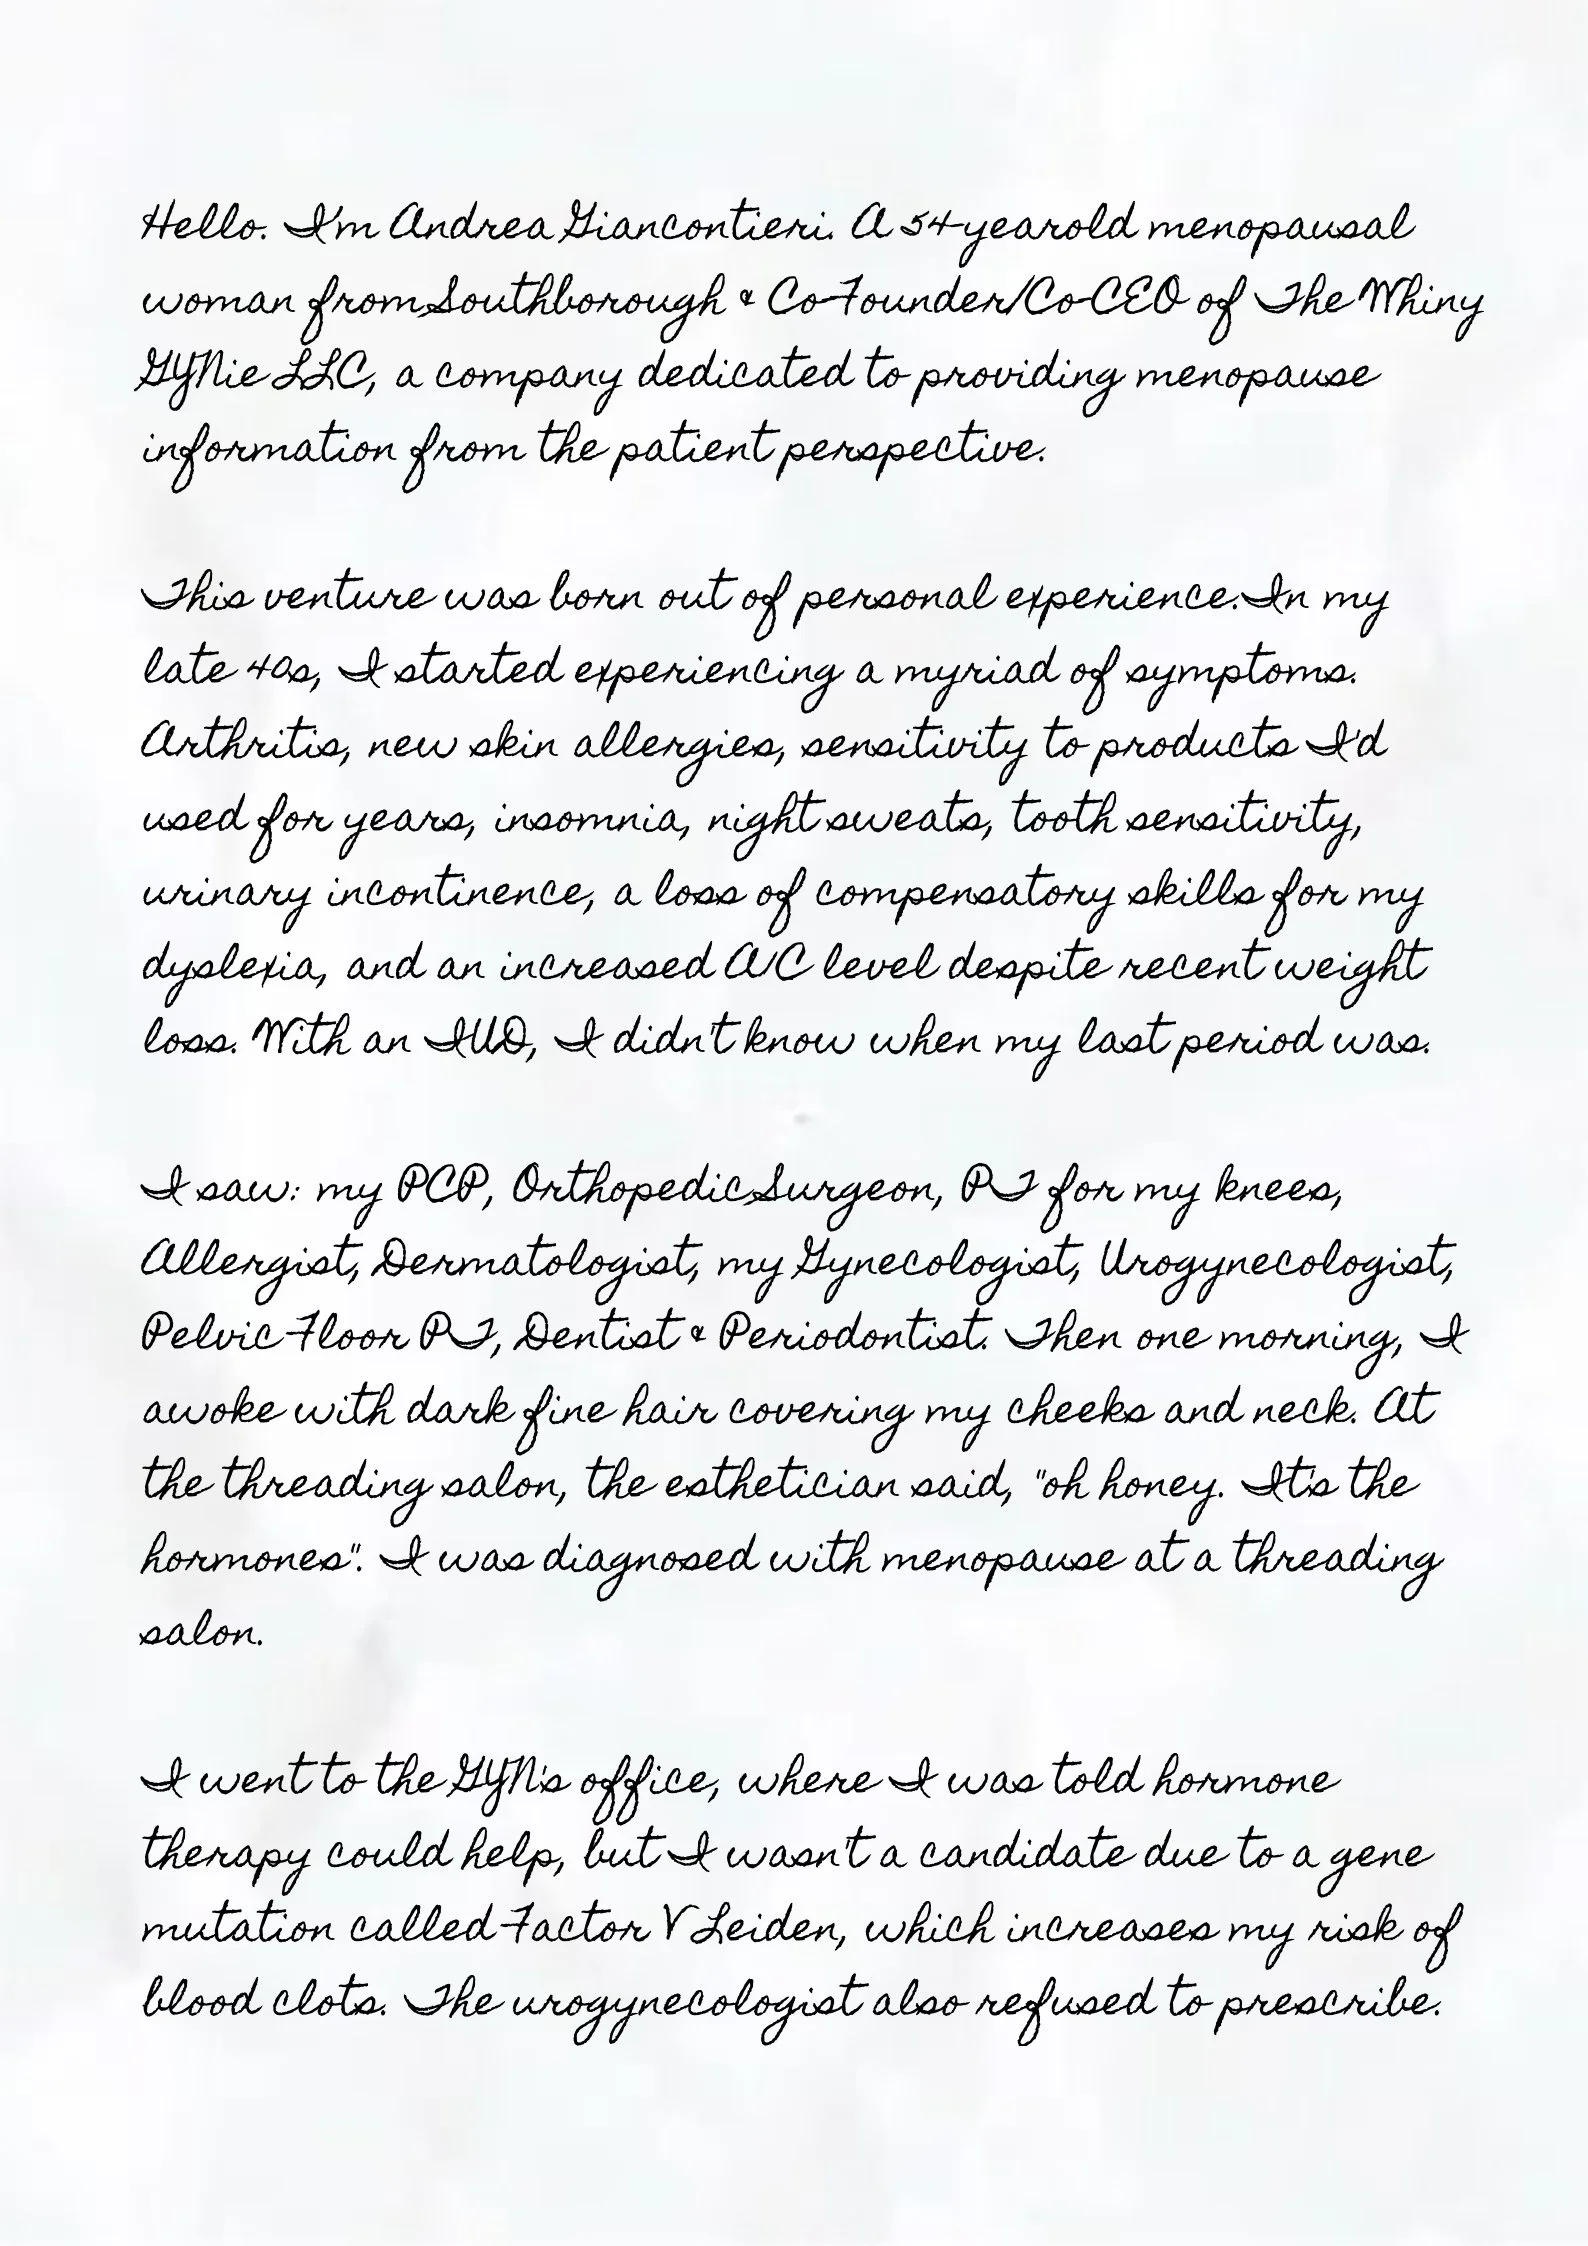 Hello. I'm Andrea Giancontieri. A 54-year old menopausal
woman from Southborough & Co-Founder/Co-CEO of The Whiny
GYNie LLC, a company dedicated to providing menopause
information from the patient perspective.
This venture was born out of personal experience. In my
late 40s, I started experiencing a myriad of symptoms.
Arthritis, new skin allergies, sensitivity to products I'd
used for years, insomnia, night sweats, tooth sensitivity,
urinary incontinence, a loss of compensatory skills for my
dyslexia, and an increased A1C level despite recent weight
loss. With an IUD, I didn't know when my last period was.
I saw: my PCP, Orthopedic Surgeon, PT for my knees,
Allergist, Dermatologist, my Gynecologist, Urogynecologist,
Pelvic Floor PT, Dentist & Periodontist. Then one morning, I
awoke with dark fine hair covering my cheeks and neck. At
the threading salon, the esthetician said, "oh honey. It's the
hormones". I was diagnosed with menopause at a threading
salon.
I went to the GYN's office, where I was told hormone
therapy could help, but I wasn't a candidate due to a gene
mutation called Factor V Leiden, which increases my risk of
blood clots. The urogynecologist also refused to prescribe.